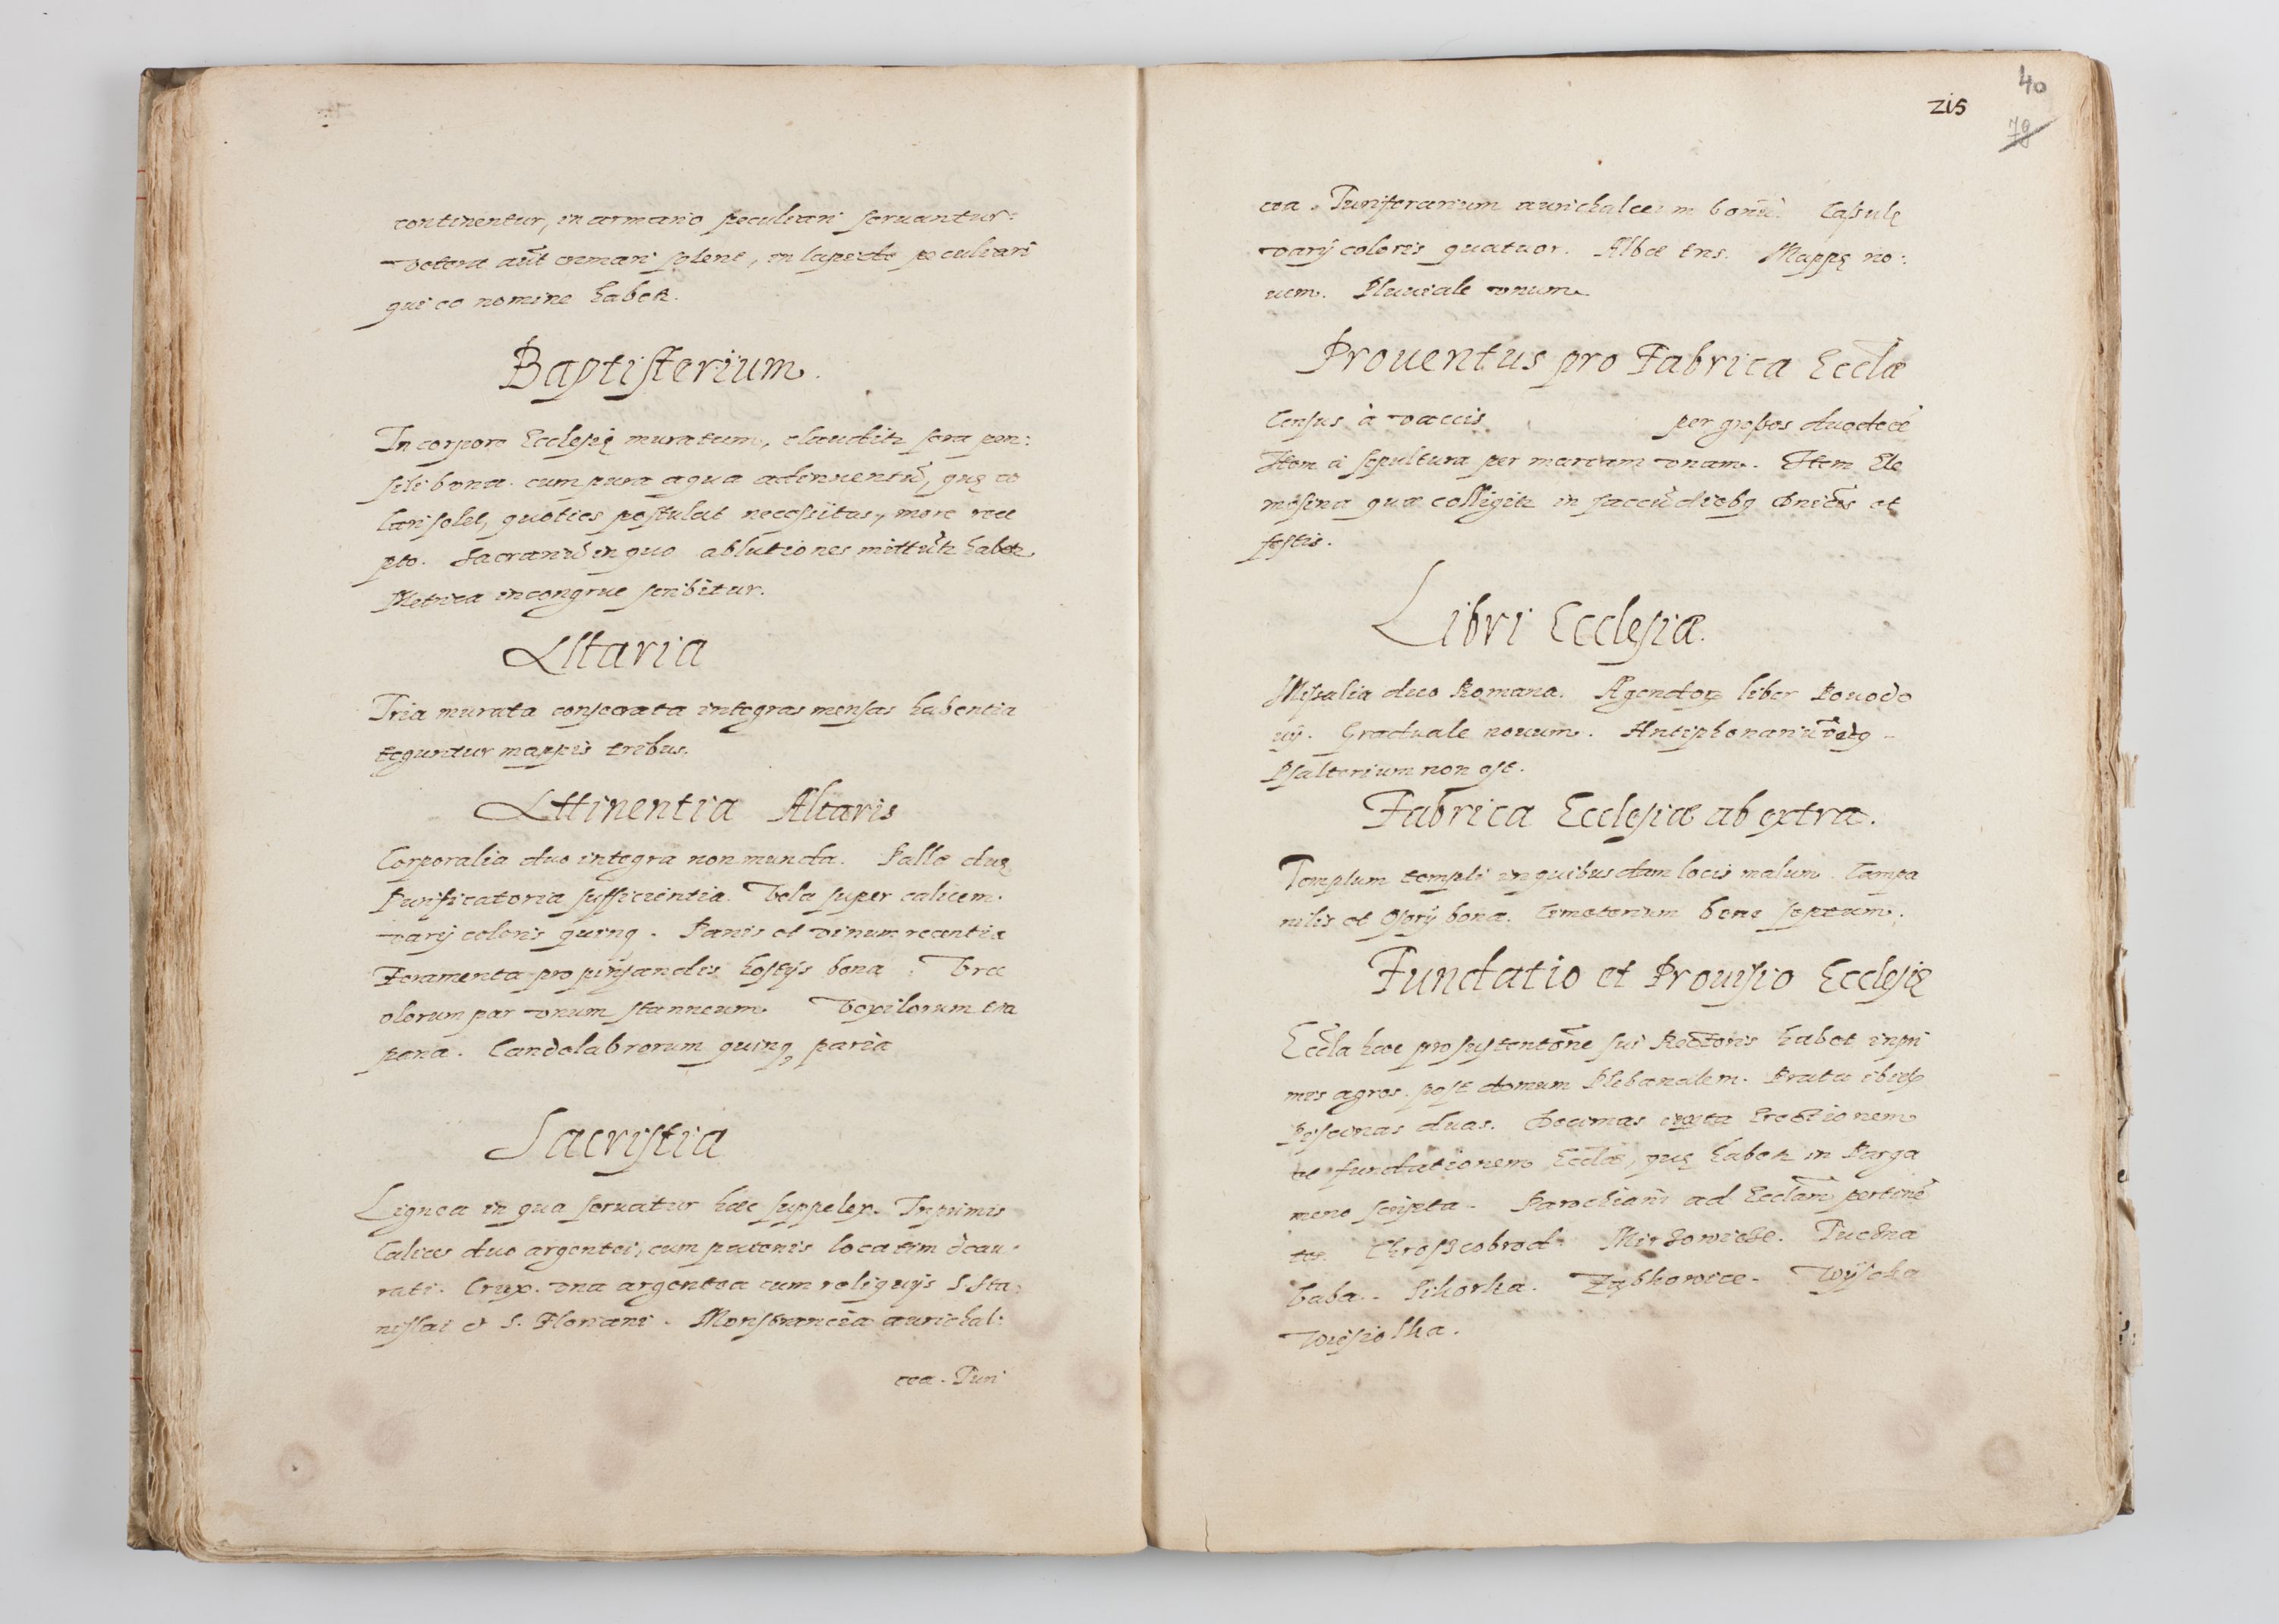 continentur, in armario peculiari seruantur:
Vetera aut̃ cremari solent, in lapide peculiari
qui eo nomine habetr.
Baptisterium.
In corpore Ecclesię muratum, clauditr sera pen:
sili bona. cum pura aqua adinuentũ, quę co
lari solet, quoties postulat necessitas, more rece
pto. Sacrariũ in quo ablutiones mittũtr habetr
Metrica incongrue scribitur.
Altaria
Tria murata consecrata integras mensas habentia
teguntur mappis tribus.
Attinentia Altaris
Corporalia duo integra non munda. Pallæ duę
Purificatoria sufficientia. Vela super calicem
varij coloris quinq. Panis et vinum recentia
Feramenta pro pinsandis hostijs bona. Vrce
olorum par vnum stanneum. Vexilorum tria
paria. Candelabrorum quinq paria
Sacristia
Lignea in qua seruatur hæc suppelex. Inprimis
Calices duo argentei, cum patenis locatim deau:
rati. Crux vna argentea cum reliquijs S. Sta:
nislai et S. Floriani. Monstrancia aurichal:
cea. Turi
40
215
78
cea. Turiferarium aurichalceum bonũ. Casulę
varij coloris quatuor. Albæ tres. Mappę no:
uem. Pluuiale vnum.
Prouentus pro Fabrica Eccłæ
Census à vaccis per grossos duodecĩ
Item a sepultura per marcam vnam. Item Ele
mosina quæ colligitr in sacculũ diebq Dnicis et
festis.
Libri Ecclesiæ.
Missalia duo Romana. Agendorum liber Pouodo
uij. Graduale nouum. Antiphonariũ vetq
Psalterium non est.
Fabrica Ecclesiæ ab extra.
Templum templi in quibusdam locis malum. Campa
nilis et Ossrij bona. Cimeterium bene septum.
Fundatio et Prouisio Ecclesię
Eccła hæc pro sustentõne sui Rectoris habet inpri
mis agros post domum Plebanalem. Prata ibidẽ
Piscinas duas. Decimas iuxta Erectionem
ac fundationem Eccłæ, quę habetr in Parga
meno scripta. Parochiani ad Eccłam pertinẽ
tes. Chroszcobrod. Mirzowicze. Tuczna
baba. Sikorka. Ząbkowice. Wysoka
Wiesiołka.